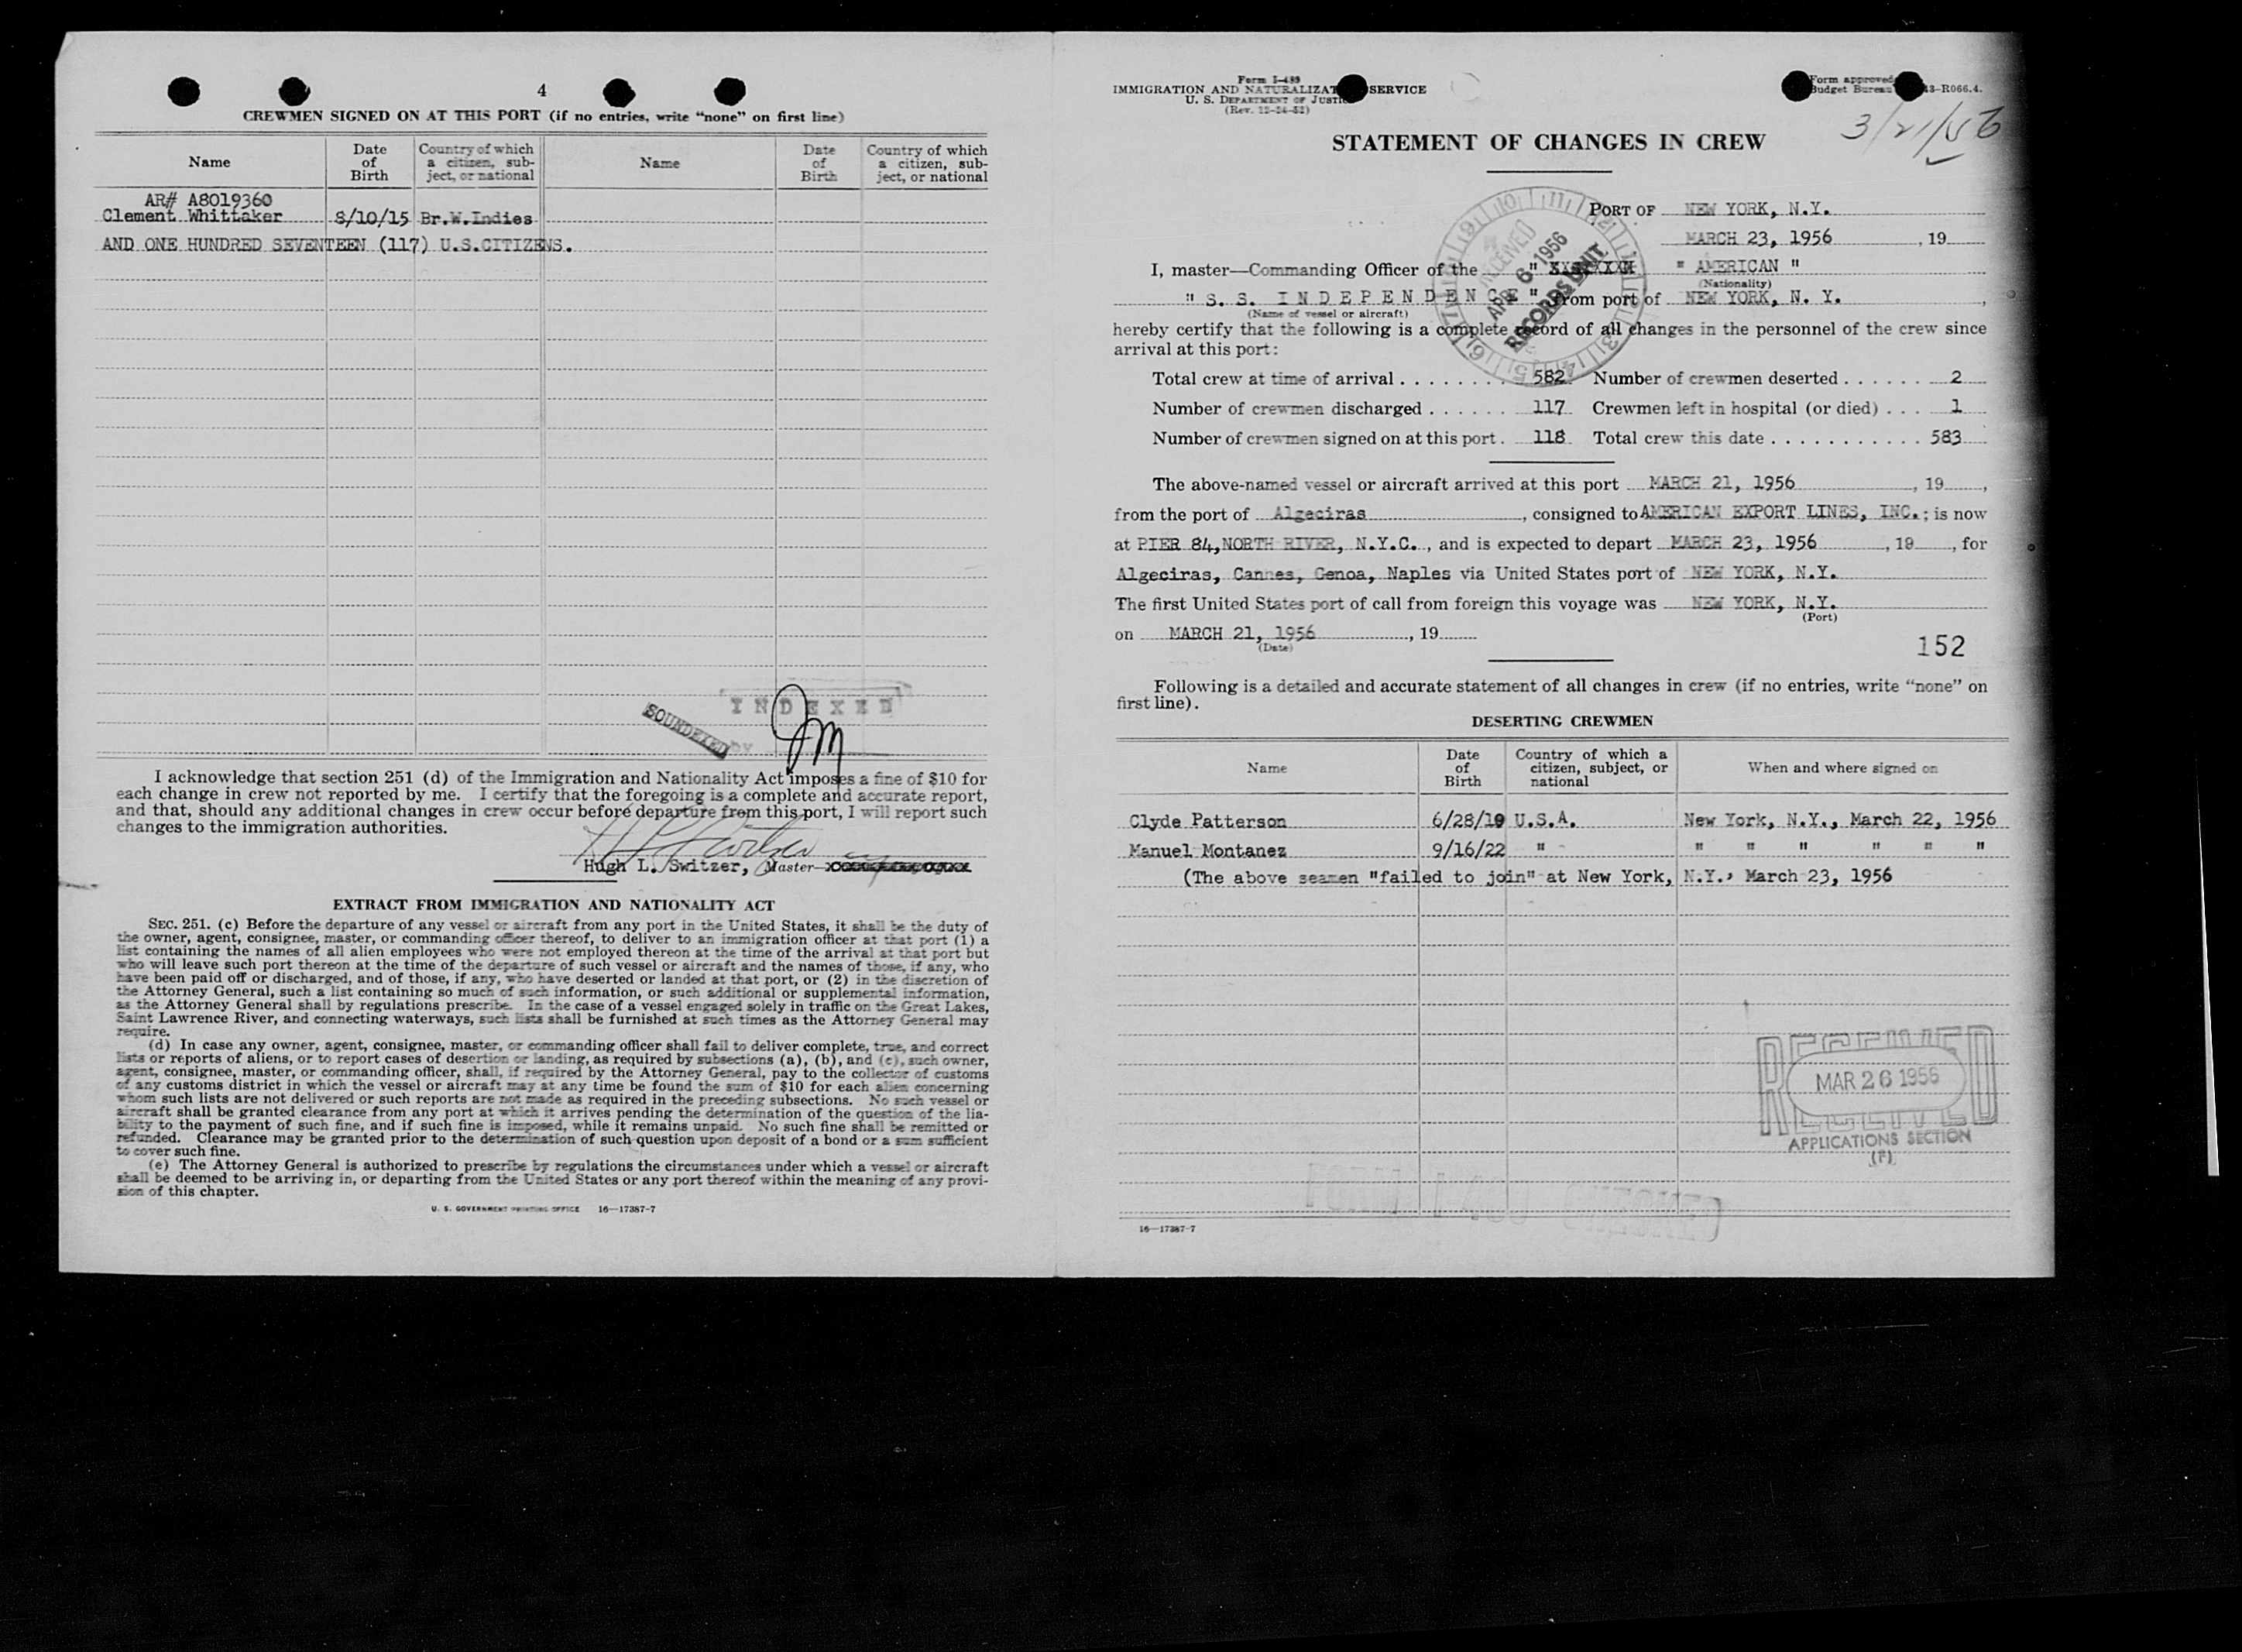 4
CREWMEN SIGNED ON AT THIS PORT (if no entries, write “none” on first line)
Name Date of Birth Country of which a citizen, subject, or national Name Date of Birth Country of which a citizen, subject, or national
AR# A8019360
Clement Whittaker 8/10/15 Br.W.Indies
AND ONE HUNDRED SEVENTEEN (117) U.S.CITIZENS.
INDEXED
SOUNDEXED
I acknowledge that section 251 (d) of the Immigration and Nationality Act imposes a fine of $10 for
each change in crew not reported by me. I certify that the foregoing is a complete and accurate report,
and that, should any additional changes in crew occur before departure from this port, I will report such
changes to the immigration authorities.
Hugh L. Switzer, Master—
EXTRACT FROM IMMIGRATION AND NATIONALITY ACT
SEC. 251. (c) Before the departure of any vessel or aircraft from any port in the United States, it shall be the duty of
the owner, agent, consignee, master, or commanding officer thereof, to deliver to an immigration officer at that port (1) a
list containing the names of all alien employees who were not employed thereon at the time of the arrival at that port but
who will leave such port thereon at the time of the departure of such vessel or aircraft and the names of those, if any, who
have been paid off or discharged, and of those, if any, who have deserted or landed at that port, or (2) in the discretion of
the Attorney General, such a list containing so much of such information, or such additional or supplemental information,
as the Attorney General shall by regulations prescribe. In the case of a vessel engaged solely in traffic on the Great Lakes,
Saint Lawrence River, and connecting waterways, such lists shall be furnished at such times as the Attorney General may
require.
(d) In case any owner, agent, consignee, master, or commanding officer shall fail to deliver complete, true, and correct
lists or reports of aliens, or to report cases of desertion or landing, as required by subsections (a), (b), and (c), such owner,
agent, consignee, master, or commanding officer, shall, if required by the Attorney General, pay to the collector of customs
of any customs district in which the vessel or aircraft may at any time be found the sum of $10 for each alien concerning
whom such lists are not delivered or such reports are not made as required in the preceding subsections. No such vessel or
aircraft shall be granted clearance from any port at which it arrives pending the determination of the question of the lia-
bility to the payment of such fine, and if such fine is imposed, while it remains unpaid. No such fine shall be remitted or
refunded. Clearance may be granted prior to the determination of such question upon deposit of a bond or a sum sufficient
to cover such fine.
(e) The Attorney General is authorized to prescribe by regulations the circumstances under which a vessel or aircraft
shall be deemed to be arriving in, or departing from the United States or any port thereof within the meaning of any provi-
sion of this chapter.
U. S. GOVERNMENT PRINTING OFFICE 16—17387-7
Form I-489
IMMIGRATION AND NATURALIZAT SERVICE
U. S. DEPARTMENT OF JUSTIC
(Rev. 12-24-52)
Form approved
Budget Bureau 43-R066.4.
3/21/56
STATEMENT OF CHANGES IN CREW
PORT OF NEW YORK, N.Y.
MARCH 23, 1956, 19
I, master—Commanding Officer of the " " AMERICAN "
(Nationality)
" S. S. I N D E P E N D E N C E " from port of NEW YORK, N. Y.,
(Name of vessel or aircraft)
RECEIVED
APR 6 1956
RECORDS UNIT
hereby certify that the following is a complete record of all changes in the personnel of the crew since
arrival at this port:
Total crew at time of arrival . . . . . . . . 582 Number of crewmen deserted . . . . . . 2
Number of crewmen discharged . . . . . . 117 Crewmen left in hospital (or died) . . . 1
Number of crewmen signed on at this port . 118 Total crew this date . . . . . . . . . . . 583
The above-named vessel or aircraft arrived at this port MARCH 21, 1956, 19,
from the port of Algeciras, consigned to AMERICAN EXPORT LINES, INC.; is now
at PIER 84, NORTH RIVER, N.Y.C., and is expected to depart MARCH 23, 1956, 19, for
Algeciras, Cannes, Genoa, Naples via United States port of NEW YORK, N.Y.
The first United States port of call from foreign this voyage was NEW YORK, N.Y.
(Port)
on MARCH 21, 1956, 19
(Date)
152
Following is a detailed and accurate statement of all changes in crew (if no entries, write “none” on
first line).
DESERTING CREWMEN
Name Date of Birth Country of which a citizen, subject, or national When and where signed on
Clyde Patterson 6/28/19 U.S.A. New York, N.Y., March 22, 1956
Manuel Montanez 9/16/22 " " " " " " "
(The above seamen "failed to join" at New York, N.Y., March 23, 1956
RECEIVED
MAR 26 1956
RECEIVED
APPLICATIONS SECTION
(F)
16—17387-7